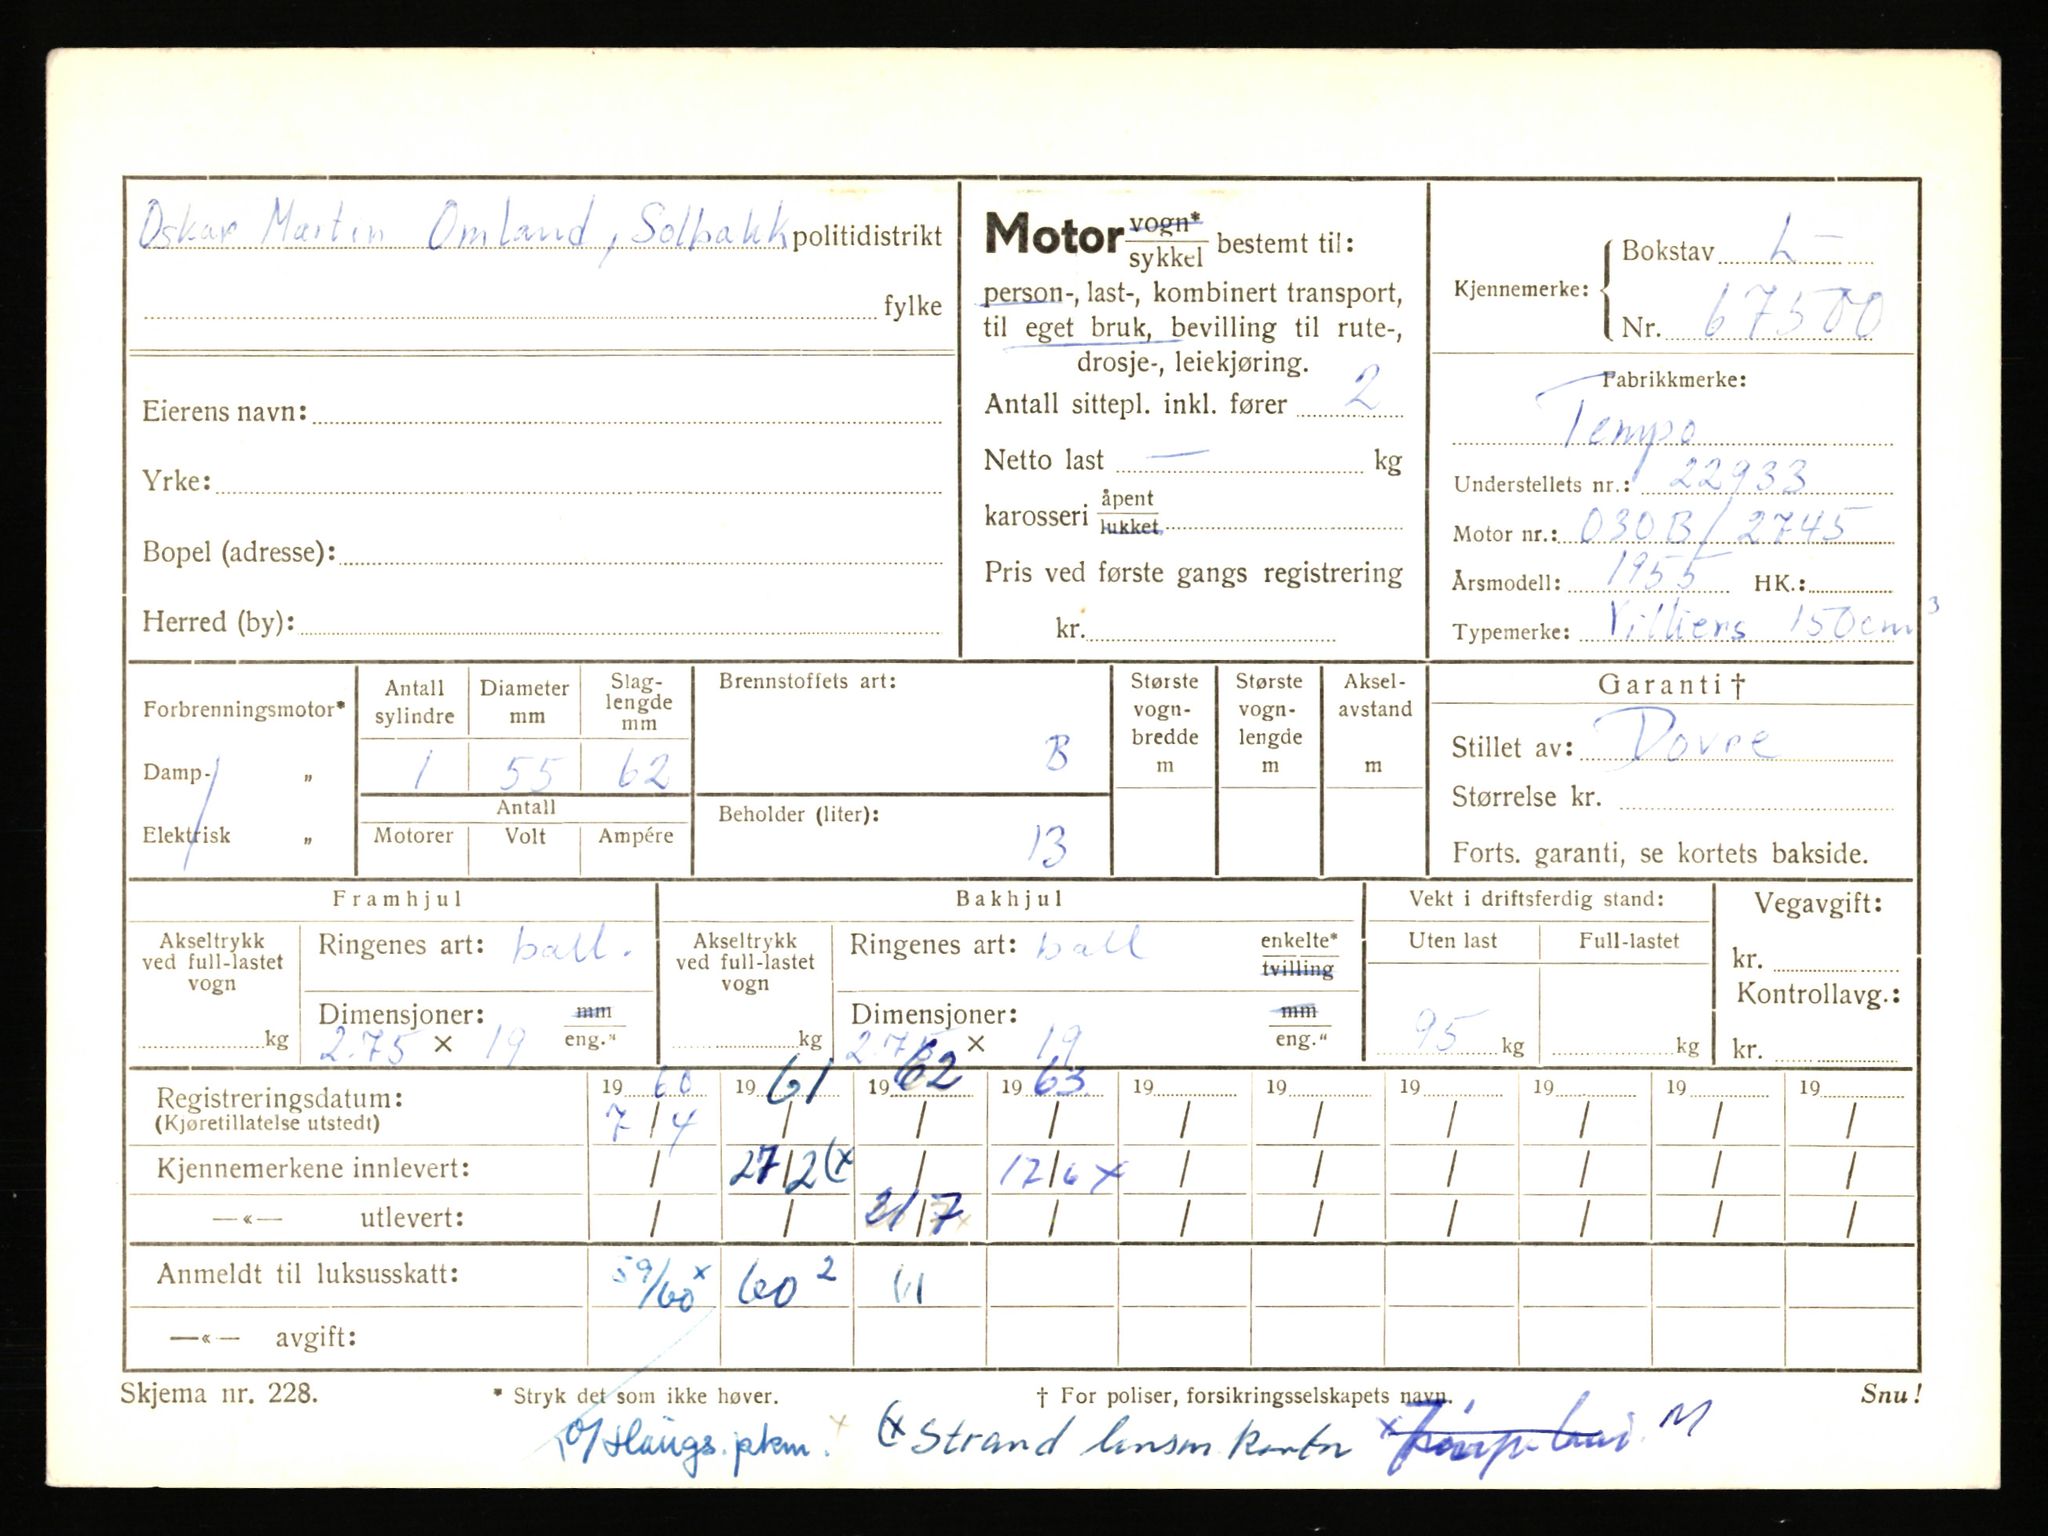 Oskar Martin Omland, Solbakk politidistrikt
fylke
Eierens navn:
Yrke:
Bopel (adresse):
Herred (by):
Motor vogn* / sykkel bestemt til:
person-, last-, kombinert transport,
til eget bruk, bevilling til rute-,
drosje-, leiekjøring.
Antall sittepl. inkl. fører 2
Netto last — kg
karosseri åpent / lukket
Pris ved første gangs registrering
kr.
Kjennemerke: Bokstav L-
Nr. 67500
Fabrikkmerke:
Tempo
Understellets nr.: 22933
Motor nr.: 030B/2745
Årsmodell: 1955 HK.:
Typemerke: Villiers 150cm³
Forbrenningsmotor*
Damp- „
Elektrisk „
Antall sylindre 1
Diameter mm 55
Slag-lengde mm 62
Antall
Motorer Volt Ampére
Brennstoffets art:
B
Beholder (liter):
13
Største vogn-bredde m
Største vogn-lengde m
Aksel-avstand m
Garanti †
Stillet av: Dovre
Størrelse kr.
Forts. garanti, se kortets bakside.
Framhjul
Akseltrykk ved full-lastet vogn
kg
Ringenes art: ball.
Dimensjoner: mm / eng."
2.75 × 19
Bakhjul
Akseltrykk ved full-lastet vogn
kg
Ringenes art: ball enkelte* / tvilling
Dimensjoner: mm / eng."
2.75 × 19
Vekt i driftsferdig stand:
Uten last Full-lastet
95 kg kg
Vegavgift:
kr.
Kontrollavg.:
kr.
Registreringsdatum: 1960 1961 1962 1963 19 19 19 19 19 19
(Kjøretillatelse utstedt) 7/4 / / / / / / / / /
Kjennemerkene innlevert: / 27/2 (x / 12/6 x / / / / / /
—«— utlevert: / / 21/7 / / / / / / /
Anmeldt til luksusskatt: 59/60 x 60 2 61
—«— avgift:
Skjema nr. 228. * Stryk det som ikke høver. † For poliser, forsikringsselskapets navn. Snu!
(x Strand lensm. kontor x M